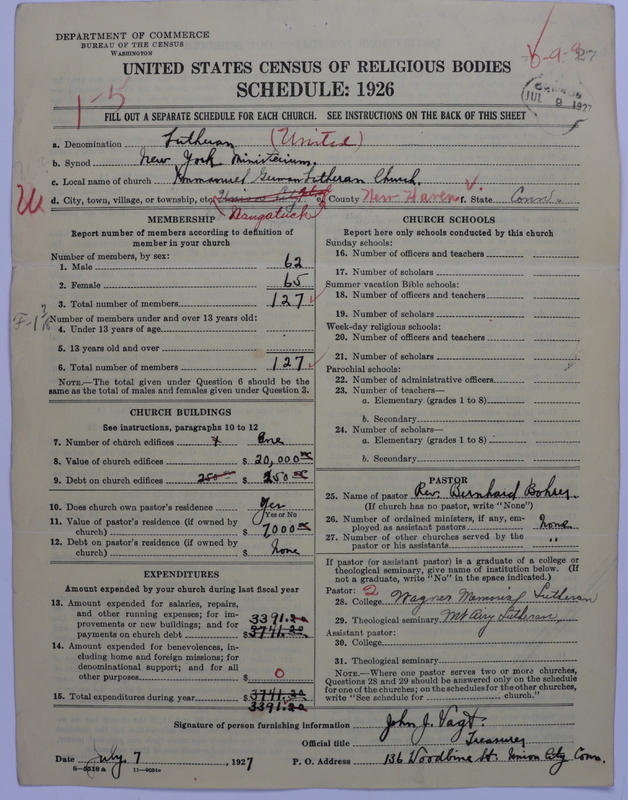 DEPARTMENT OF COMMERCE
BUREAU OF THE CENSUS
WASHINGTON
UNITED STATES CENSUS OF RELIGIOUS BODIES
SCHEDULE: 1926
1-5
JUL 9 1927
FILL OUT A SEPARATE SCHEDULE FOR EACH CHURCH. SEE INSTRUCTIONS ON THE BACK OF THIS SHEET
a. Denomination Lutheran (United)
b. Synod New York Ministerium.
c. Local name of church Immanuel German Lutheran Church.
d. City, town, village, or township, etc. Union City (Naugatuck) e. County New Haven f. State Conn.
MEMBERSHIP
Report number of members according to definition of
member in your church
Number of members, by sex:
1. Male 62
2. Female 65
3. Total number of members 127
Number of members under and over 13 years old:
4. Under 13 years of age
5. 13 years old and over
6. Total number of members 127
NOTE.—The total given under Question 6 should be the
same as the total of males and females given under Question 3.
CHURCH BUILDINGS
See instructions, paragraphs 10 to 12
7. Number of church edifices 1 One
8. Value of church edifices $ 20,000 00
9. Debt on church edifices 250 00 $ 250 00
10. Does church own pastor's residence Yes
Yes or No
11. Value of pastor's residence (if owned by
church) $ 7000 00
12. Debt on pastor's residence (if owned by
church) $ None
EXPENDITURES
Amount expended by your church during last fiscal year
13. Amount expended for salaries, repairs,
and other running expenses; for im-
provements or new buildings; and for 3391.20
payments on church debt $ 3741.20
14. Amount expended for benevolences, in-
cluding home and foreign missions; for
denominational support; and for all
other purposes $ 0
15. Total expenditures during year $ 3741.20
3391.20
CHURCH SCHOOLS
Report here only schools conducted by this church
Sunday schools:
16. Number of officers and teachers
17. Number of scholars
Summer vacation Bible schools:
18. Number of officers and teachers
19. Number of scholars
Week-day religious schools:
20. Number of officers and teachers
21. Number of scholars
Parochial schools:
22. Number of administrative officers
23. Number of teachers—
a. Elementary (grades 1 to 8)
b. Secondary
24. Number of scholars—
a. Elementary (grades 1 to 8)
b. Secondary
PASTOR
25. Name of pastor Rev. Bernhard Bohrer
(If church has no pastor, write "None")
26. Number of ordained ministers, if any, em-
ployed as assistant pastors None
27. Number of other churches served by the
pastor or his assistants "
If pastor (or assistant pastor) is a graduate of a college or
theological seminary, give name of institution below. (If
not a graduate, write "No" in the space indicated.)
Pastor: 2
28. College Wagner Memorial Lutheran
29. Theological seminary Mt Airy Lutheran
Assistant pastor:
30. College
31. Theological seminary
NOTE.—Where one pastor serves two or more churches,
Questions 28 and 29 should be answered only on the schedule
for one of the churches; on the schedules for the other churches,
write "See schedule for church."
Signature of person furnishing information John J. Vagt.
Official title Treasurer
Date July 7, 1927 P. O. Address 136 Woodbine St. Union City Conn.
8-5518 a 11-9031